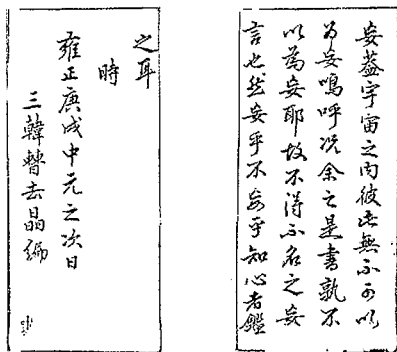 妄蓋宇宙之內彼此無不可以
為妄嗚呼況余之是書孰不
以為妄耶故不得不名之妄
言也然妄乎不妄乎知心者鑑
之耳
時
雍正庚戌中元之次日
三韓曹去晶編